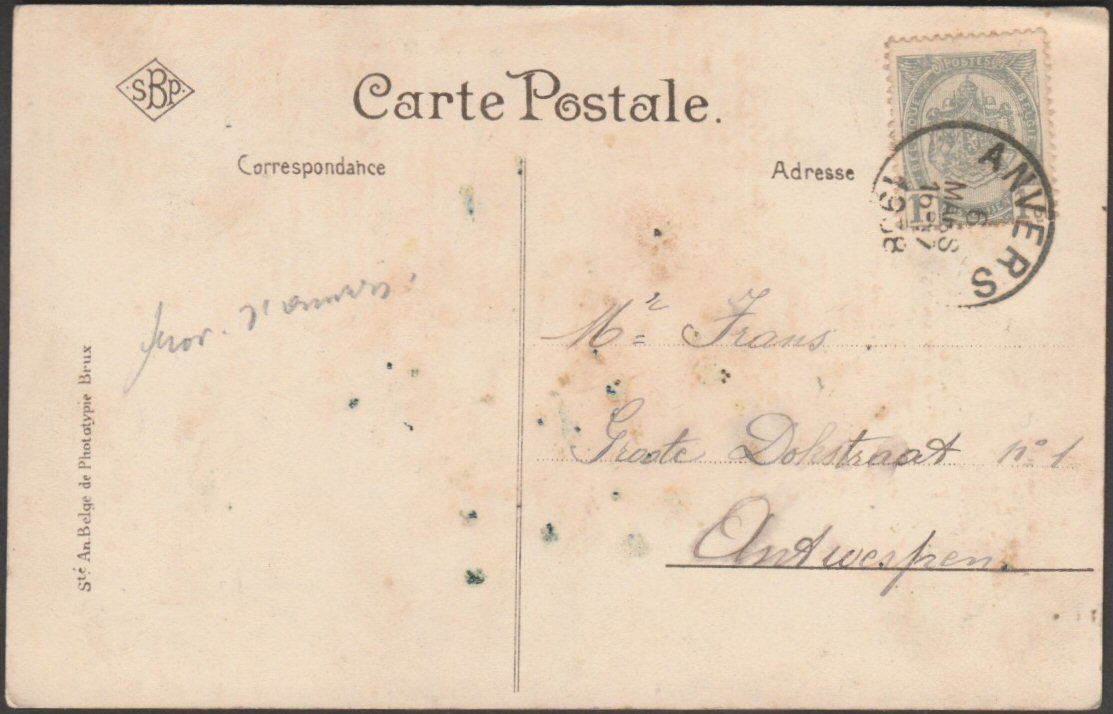 SBP
Carte Postale.
Correspondance
Adresse
POSTES
ANVERS
6
MARS
16-17
1908
Mr Frans
Groote Dokstraat no 1
Antwerpen
Sté An. Belge de Phototypie Brux